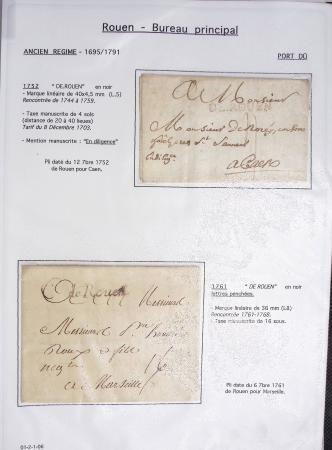 Rouen - Bureau principal
ANCIEN REGIME - 1695/1791
PORT DÛ
1752 "DE.ROUEN" en noir
- Marque linéaire de 40x4,5 mm (L.5)
Rencontrée de 1744 à 1759.
- Taxe manuscrite de 4 sols
(distance de 20 à 40 lieues)
Tarif du 8 Décembre 1703.
- Mention manuscrite : "En diligence"
Pli daté du 12 7bre 1752
de Rouen pour Caen.
DE.ROUEN
A Monsieur
Monsieur
a Caen
1761 "DE ROUEN" en noir
lettres penchées.
- Marque linéaire de 36 mm (L8)
Rencontrée 1761-1768.
- Taxe manuscrite de 16 sous.
Pli daté du 6 7bre 1761
de Rouen pour Marseille.
De Rouen
Messieurs
Roux et fils
a Marseille
01-2-1-06